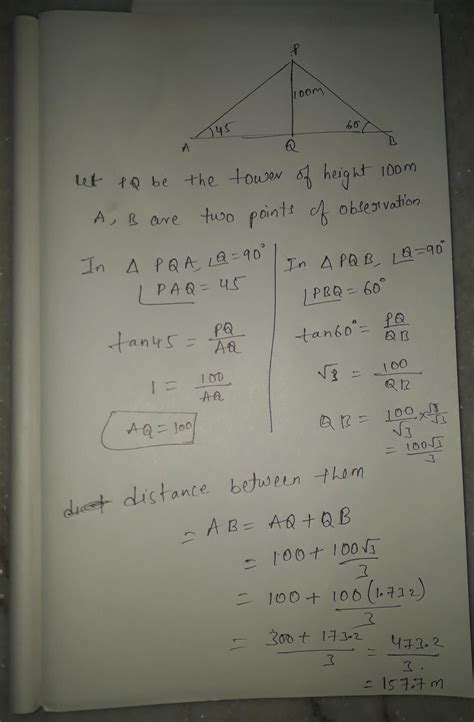 P
100m
45
60
A
Q
B
let PQ be the tower of height 100m
A, B are two points of observation
In Δ PQA, ∠Q = 90°
∠PAQ = 45
tan45 = PQ/AQ
1 = 100/AQ
AQ = 100
In Δ PQB, ∠Q = 90°
∠PBQ = 60°
tan60° = PQ/QB
√3 = 100/QB
QB = 100/√3 × √3/√3
= 100√3/3
distance between them
= AB = AQ + QB
= 100 + 100√3/3
= 100 + 100(1.732)/3
= 300 + 173.2/3 = 473.2/3.
= 157.7 m